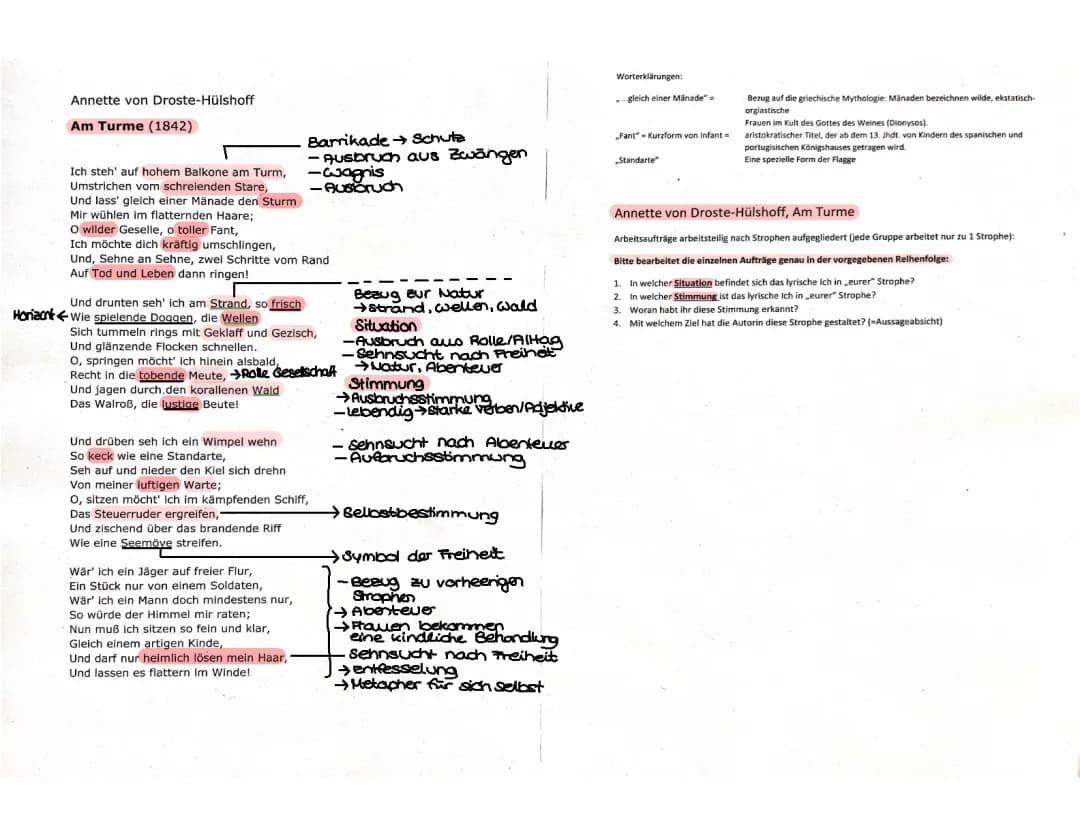 Annette von Droste-Hülshoff
Am Turme (1842)
Barrikade → Schutz
- Ausbruch aus Zwängen
- Wagnis
- Ausbruch
Ich steh' auf hohem Balkone am Turm,
Umstrichen vom schreienden Stare,
Und lass' gleich einer Mänade den Sturm
Mir wühlen im flatternden Haare;
O wilder Geselle, o toller Fant,
Ich möchte dich kräftig umschlingen,
Und, Sehne an Sehne, zwei Schritte vom Rand
Auf Tod und Leben dann ringen!
Und drunten seh' ich am Strand, so frisch
Horizont ← Wie spielende Doggen, die Wellen
Sich tummeln rings mit Geklaff und Gezisch,
Und glänzende Flocken schnellen.
O, springen möcht' ich hinein alsbald,
Recht in die tobende Meute, → Rolle Gesellschaft
Und jagen durch den korallenen Wald
Das Walroß, die lustige Beute!
Bezug zur Natur
→ Strand, Wellen, Wald
Situation
- Ausbruch aus Rolle/Alltag
- Sehnsucht nach Freiheit
→ Natur, Abenteuer
Stimmung
→ Ausbruchsstimmung
- lebendig → starke Verben/Adjektive
Und drüben seh ich ein Wimpel wehn
So keck wie eine Standarte,
Seh auf und nieder den Kiel sich drehn
Von meiner luftigen Warte;
O, sitzen möcht' ich im kämpfenden Schiff,
Das Steuerruder ergreifen,
Und zischend über das brandende Riff
Wie eine Seemöve streifen.
- Sehnsucht nach Abenteuer
- Aufbruchsstimmung
→ Selbstbestimmung
→ Symbol der Freiheit
Wär' ich ein Jäger auf freier Flur,
Ein Stück nur von einem Soldaten,
Wär' ich ein Mann doch mindestens nur,
So würde der Himmel mir raten;
Nun muß ich sitzen so fein und klar,
Gleich einem artigen Kinde,
Und darf nur heimlich lösen mein Haar,
Und lassen es flattern im Winde!
- Bezug zu vorheerigen
Strophen
→ Abenteuer
→ Frauen bekommen
eine kindliche Behandlung
- Sehnsucht nach Freiheit
→ entfesselung
→ Metapher für sich selbst
Worterklärungen:
„...gleich einer Mänade" = Bezug auf die griechische Mythologie: Mänaden bezeichnen wilde, ekstatisch-
orgiastische
Frauen im Kult des Gottes des Weines (Dionysos).
„Fant" = Kurzform von Infant = aristokratischer Titel, der ab dem 13. Jhdt. von Kindern des spanischen und
portugisischen Königshauses getragen wird.
„Standarte" Eine spezielle Form der Flagge
Annette von Droste-Hülshoff, Am Turme
Arbeitsaufträge arbeitsteilig nach Strophen aufgegliedert (jede Gruppe arbeitet nur zu 1 Strophe):
Bitte bearbeitet die einzelnen Aufträge genau in der vorgegebenen Reihenfolge:
1. In welcher Situation befindet sich das lyrische Ich in „eurer" Strophe?
2. In welcher Stimmung ist das lyrische Ich in „eurer" Strophe?
3. Woran habt ihr diese Stimmung erkannt?
4. Mit welchem Ziel hat die Autorin diese Strophe gestaltet? (=Aussageabsicht)